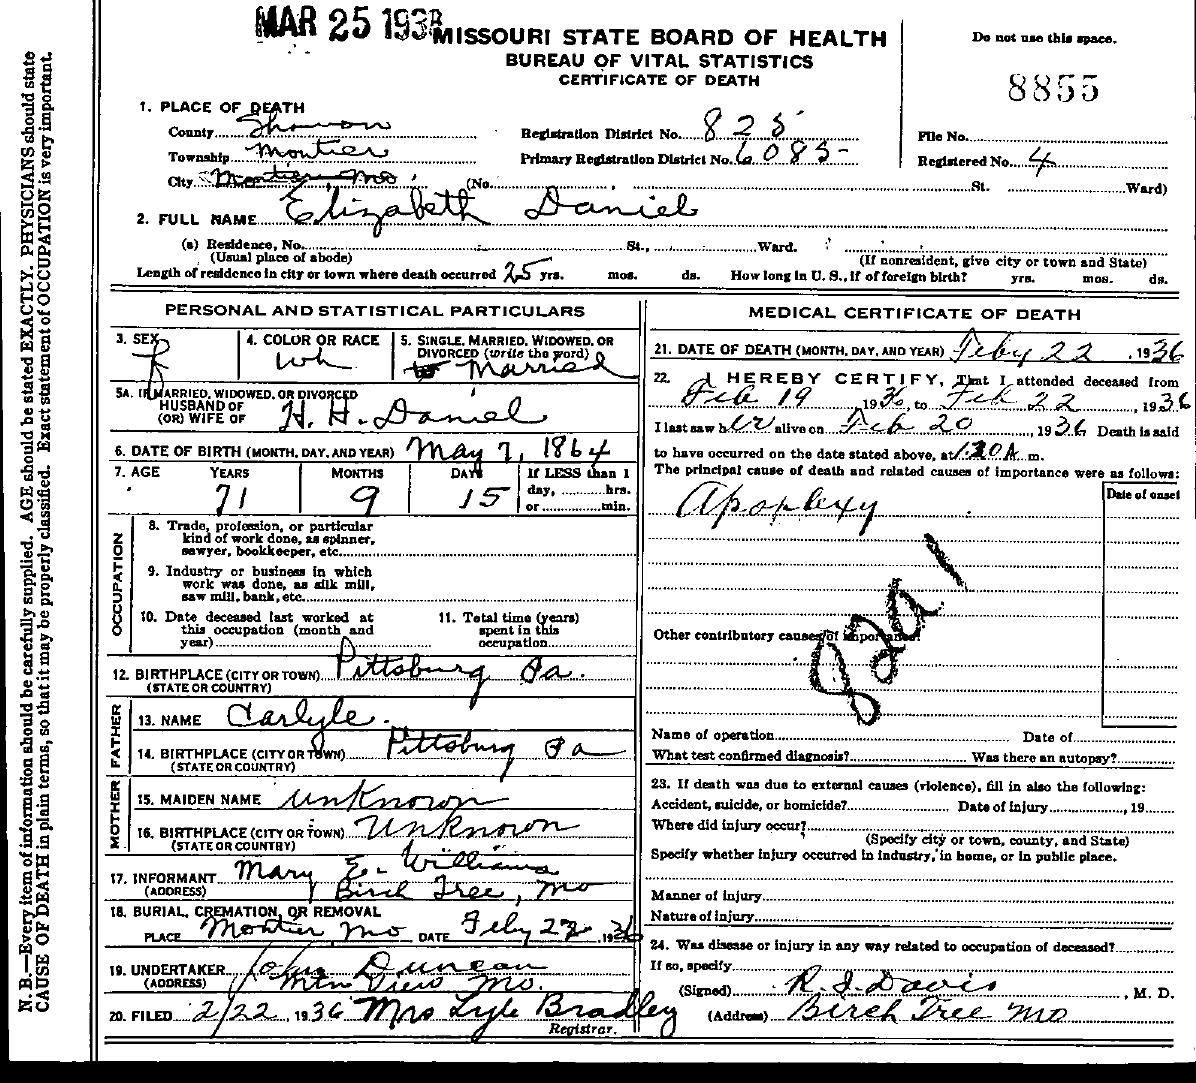 MAR 25 193
MISSOURI STATE BOARD OF HEALTH
BUREAU OF VITAL STATISTICS
CERTIFICATE OF DEATH
Do not use this space.
8855
1. PLACE OF DEATH
County Shannon
Township Montier
City Montier, Mo. (No. St. Ward)
Registration District No. 825
Primary Registration District No. 6085-
File No.
Registered No. 4
2. FULL NAME Elizabeth Daniel
(a) Residence, No. St., Ward.
(Usual place of abode) (If nonresident, give city or town and State)
Length of residence in city or town where death occurred 25 yrs. mos. ds. How long in U. S., if of foreign birth? yrs. mos. ds.
PERSONAL AND STATISTICAL PARTICULARS
3. SEX F
4. COLOR OR RACE wh
5. SINGLE, MARRIED, WIDOWED, OR
DIVORCED (write the word)
Married
5A. IF MARRIED, WIDOWED, OR DIVORCED
HUSBAND OF
(OR) WIFE OF H. H. Daniel
6. DATE OF BIRTH (MONTH, DAY, AND YEAR) May 7, 1864
7. AGE YEARS MONTHS DAYS If LESS than 1
day, hrs.
or min.
71 9 15
OCCUPATION
8. Trade, profession, or particular
kind of work done, as spinner,
sawyer, bookkeeper, etc.
9. Industry or business in which
work was done, as silk mill,
saw mill, bank, etc.
10. Date deceased last worked at
this occupation (month and
year)
11. Total time (years)
spent in this
occupation
12. BIRTHPLACE (CITY OR TOWN) Pittsburg Pa.
(STATE OR COUNTRY)
FATHER
13. NAME Carlyle.
14. BIRTHPLACE (CITY OR TOWN) Pittsburg Pa
(STATE OR COUNTRY)
MOTHER
15. MAIDEN NAME Unknown
16. BIRTHPLACE (CITY OR TOWN) Unknown
(STATE OR COUNTRY)
17. INFORMANT Mary E. Williams
(ADDRESS) Birch Tree, Mo
18. BURIAL, CREMATION, OR REMOVAL
PLACE Montier Mo DATE Feby 22, 1936
19. UNDERTAKER John Duncan
(ADDRESS) Mtn View Mo.
20. FILED 2/22, 1936 Mrs Lyle Bradley
Registrar.
MEDICAL CERTIFICATE OF DEATH
21. DATE OF DEATH (MONTH, DAY, AND YEAR) Feby 22, 1936
22. I HEREBY CERTIFY, That I attended deceased from
Feb 19 1936, to Feb 22, 1936
I last saw her alive on Feb 20, 1936 Death is said
to have occurred on the date stated above, at 1:20 A. m.
The principal cause of death and related causes of importance were as follows:
Date of onset
Apoplexy
Other contributory causes of importance:
Name of operation Date of
What test confirmed diagnosis? Was there an autopsy?
23. If death was due to external causes (violence), fill in also the following:
Accident, suicide, or homicide? Date of injury, 19
Where did injury occur?
(Specify city or town, county, and State)
Specify whether injury occurred in industry, in home, or in public place.
Manner of injury
Nature of injury
24. Was disease or injury in any way related to occupation of deceased?
If so, specify
(Signed) R. I. Davis, M. D.
(Address) Birch Tree Mo
N. B.—Every item of information should be carefully supplied. AGE should be stated EXACTLY. PHYSICIANS should state
CAUSE OF DEATH in plain terms, so that it may be properly classified. Exact statement of OCCUPATION is very important.